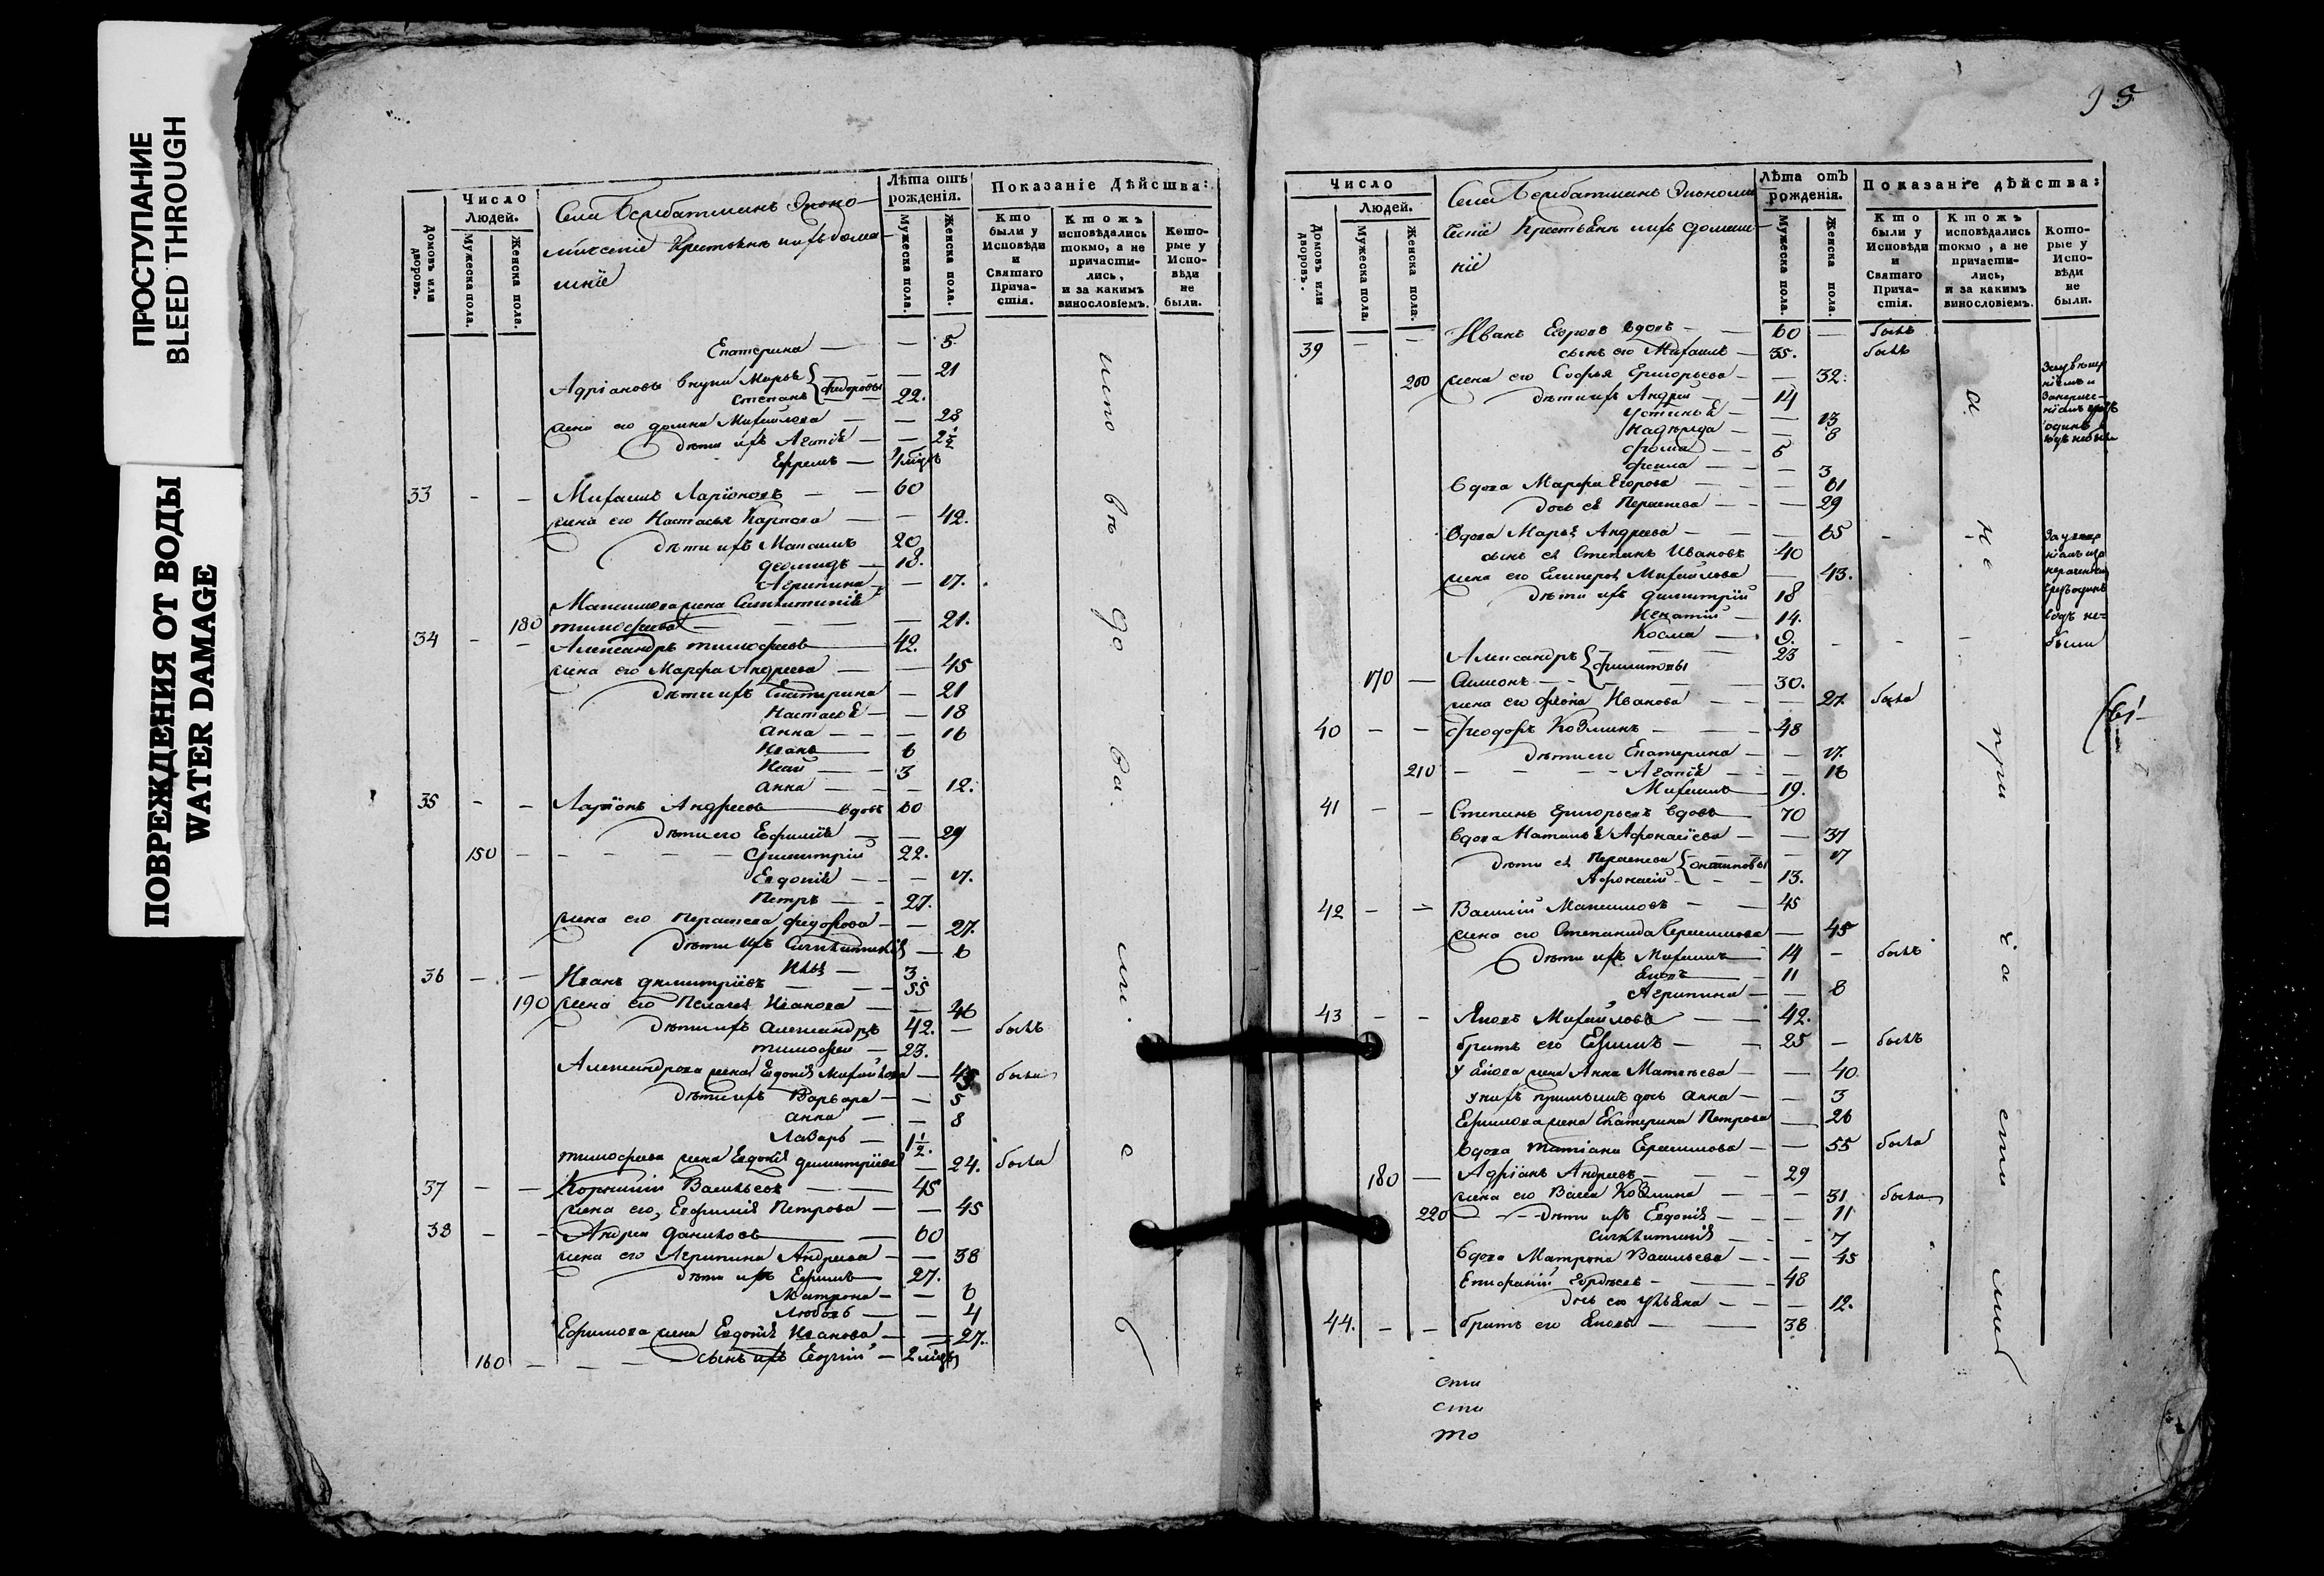 ПРОСТУПАНИЕ
BLEED THROUGH
ПОВРЕЖДЕНИЯ ОТ ВОДЫ
WATER DAMAGE
Домовъ или дворовъ.
Число Людей.
Мужеска пола.
Женска пола.
Села Экономическіе Крестьяне ихъ домашніе
Лѣта отъ рожденія.
Мужеска пола.
Женска пола.
Показаніе Дѣйства:
Кто были у Исповѣди и Святаго Причастія.
Ктожъ исповѣдались токмо, а не причастились, и за какимъ винословіемъ.
Которые у Исповѣди не были.
Екатерина — — 5
Адріановы внуки Марья — — 21
Степанъ Федоровы 22.
жена его Домна Михайлова — — 28
дѣти ихъ Агафія — — 2½
Ефремъ —
33 — — Михаилъ Ларіоновъ — — 60
жена его Настасья Карпова — — 42.
дѣти ихъ Максимъ 20
18.
Агрипина — — 17.
Максимова жена Синклитикія
180 Тимофеева — — 21.
34 — — Александръ Тимофеевъ 42.
жена его Марфа Андреева — — 45
дѣти ихъ Екатерина — 21
Настасья — — 18
Анна — — — 16
Иванъ 6
Исай — — 3
Анна — — — 12.
35 — — Ларіонъ Андреевъ вдовъ 60
дѣти его Евфимія — — 29
150 — — — — Димитрій 22.
Евдокія — — — 17.
Петръ — — 27.
жена его Параскева Федорова — — 27.
дѣти ихъ Синклитикія — 6
Илья — 3.
36 — — Иванъ Димитріевъ — — 55
190 жена его Пелагея Иванова — — 46
дѣти ихъ Александръ 42. — былъ
Тимофей — 23.
Александрова жена Евдокія Михайлова — 45 была
дѣти ихъ Варвара — — 5
Анна — — 8
Лазарь — 1½.
Тимофеева жена Евдокія Димитріева — 24. была
37 — — Корнилій Васильевъ — — 45
жена его, Евфимія Петрова — — 45
38 — — Андрей Даниловъ — 60
жена его Агрипина Андреева — — 38
дѣти ихъ Ефимъ 27.
Матрона — — 6
Любовь — — 4
Ефимова жена Евдокія Иванова — — 27.
160 — — — сынъ ихъ —
исповѣдовались
95
Домовъ или дворовъ.
Число Людей.
Мужеска пола.
Женска пола.
Села Экономическіе Крестьяне ихъ домашніе
Лѣта отъ рожденія.
Мужеска пола.
Женска пола.
Показаніе дѣйства:
Кто были у Исповѣди и Святаго Причастія.
Ктожъ исповѣдались токмо, а не причастились, и за какимъ винословіемъ.
Которые у Исповѣди не были.
39 — — Иванъ Егоровъ вдовъ — — 60 — былъ
сынъ его Михаилъ — 35. былъ
200 жена его Софья Григорьева — — 32.
дѣти ихъ Андрей — — 14
Устинья — — 13
Надежда — — 8
Фома — — 5
Фекла — — — 3
вдова Марфа Егорова — — — 61
дочь ея Параскева — — — 29
вдова Марья Андреева — — 65
сынъ ея Степанъ Ивановъ 40
жена его Гликерія Михайлова — 43.
дѣти ихъ Димитрій 18
Игнатій — 14.
Косма — 9.
Александръ Филиповы 23
170 — Симионъ — — 30.
жена его Иванова — — — 27. была
40 — — Феодоръ Козминъ — — 48
дѣти его Екатерина — — 17.
210 — — — — Агафія — — 16
Михаилъ 19.
41 — — Степанъ Григорьевъ вдовъ 70
вдова Наталья Афонасіева — — 37
дѣти ея Параскева — 17
Афонасій — — 13.
42 — — Василій Максимовъ — — 45
жена его Степанида Герасимова — 45
дѣти ихъ Михаилъ 14 — былъ
Яковъ — 11
Агрипина — — 8
43 — — Яковъ Михайловъ — — 42.
братъ его Ефимъ — — 25 — былъ
у Якова жена Анна Матвѣева — — 40
дочь Анна — — 3
Ефимова жена Екатерина Петрова — 26
вдова Татіана Герасимова — — 55 была
180 — Адріанъ Андреевъ — — 29
жена его Васса Козмина — — — 31 была
220 — — дѣти ихъ Евдокія — — — 11
Синклитикія — — 7
вдова Матрона Васильева — — — 45
Епифаній — 48
дочь его Ульяна — — — 12.
44. — — братъ его Яковъ — — 38
а не причастились
сти
сти
то